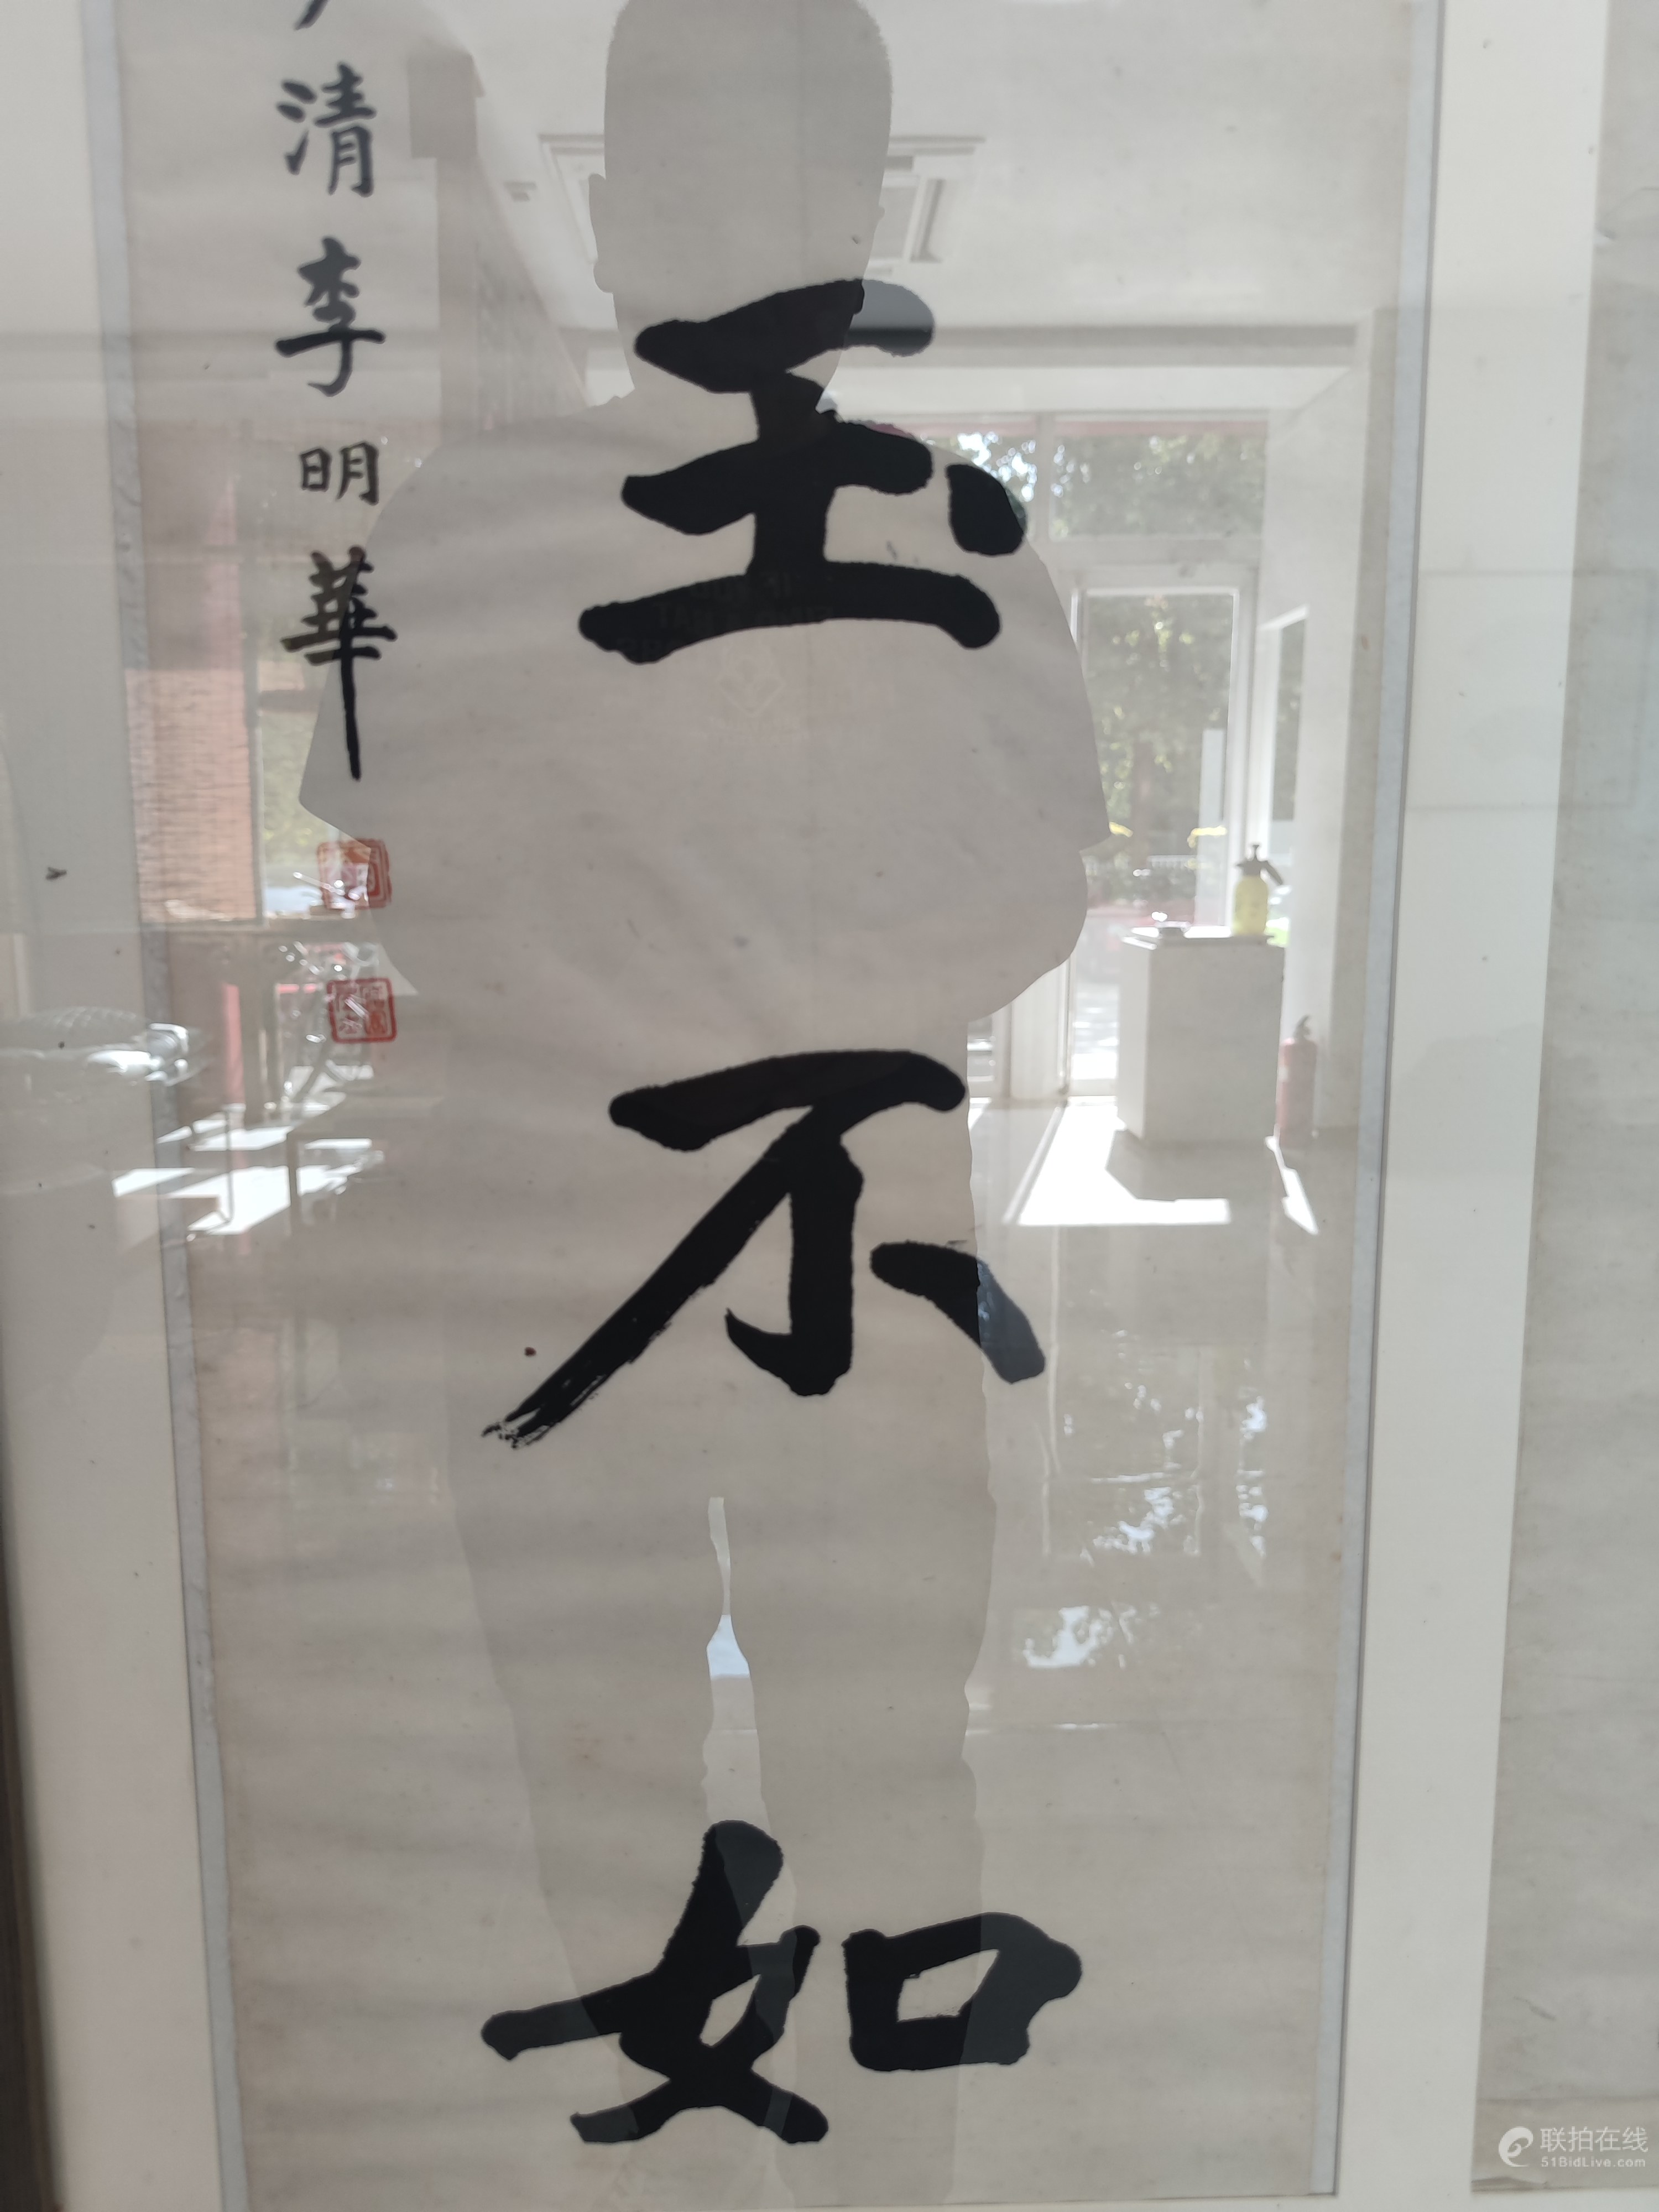 玉不如
清李明華
联拍在线
51BidLive.com